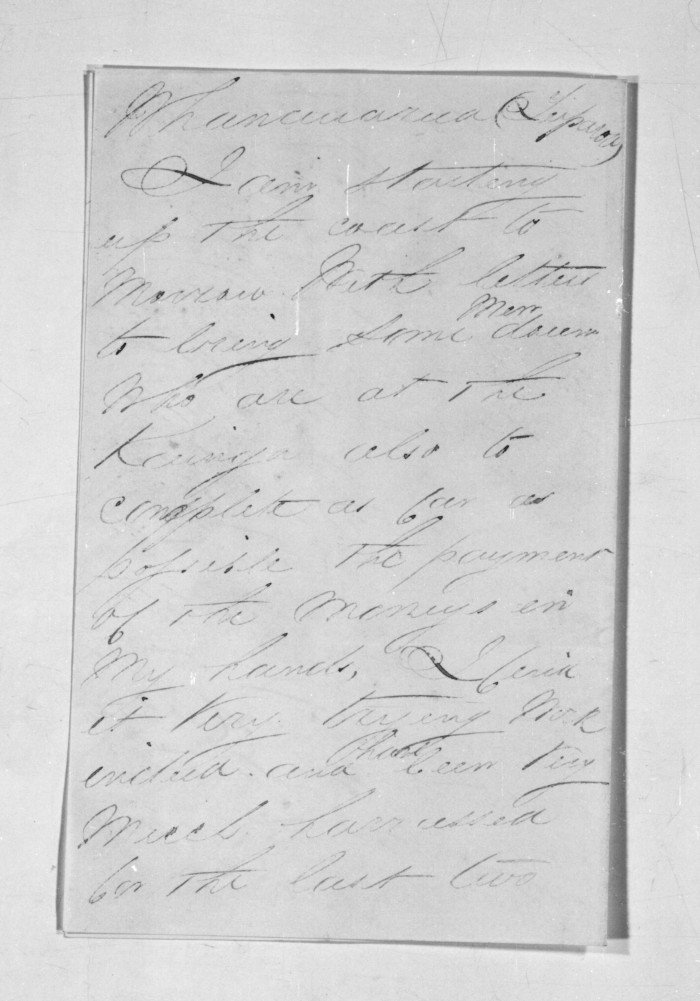 Whanawarua (Topsy)
I am starting
up the coast to
Morrow With letters
to bring some Men down
Who are at the
Kainga also to
complete as far as
possible the payment
of the Moneys in
My hands, I find
it very trying Work
indeed and I have been very
Much harrassed
for the last two